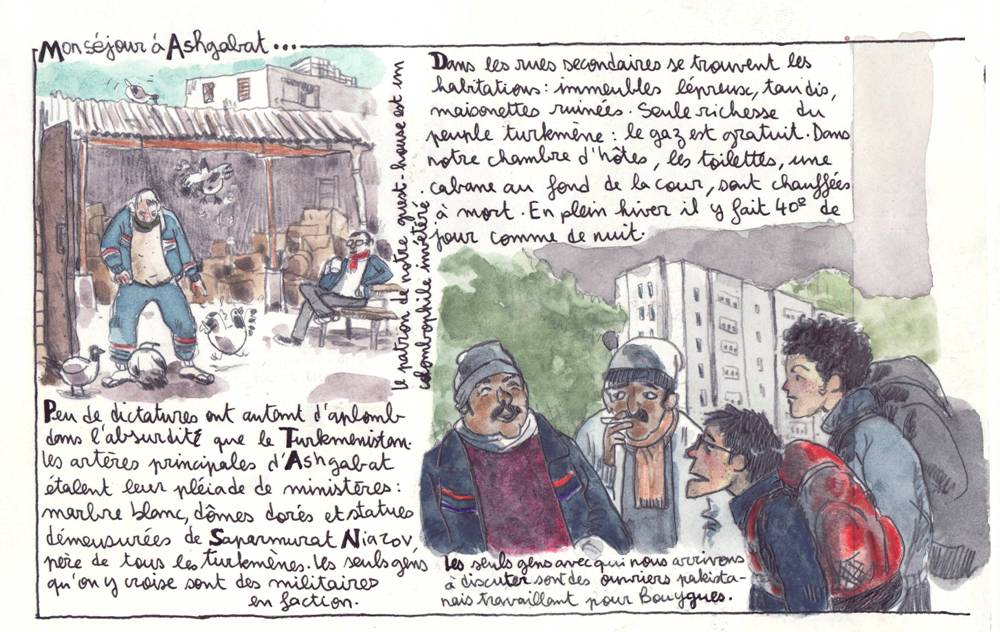 Mon séjour à Ashgabat...
le patron de notre guest-house est un
colombophile invétéré.
Peu de dictatures ont autant d'aplomb
dans l'absurdité que le Turkménistan.
Les artères principales d'Ashgabat
étalent leur pléiade de ministères :
marbre blanc, dômes dorés et statues
démeusurées de Sapermurat Niazov,
père de tous les turkmènes. Les seuls gens
qu'on y croise sont des militaires
en faction.
Dans les rues secondaires se trouvent les
habitations : immeubles lépreux, taudis,
maisonettes ruinées. Seule richesse du
peuple turkmène : le gaz est gratuit. Dans
notre chambre d'hôtes, les toilettes, une
cabane au fond de la cour, sont chauffées
à mort. En plein hiver il y fait 40º de
jour comme de nuit.
Les seuls gens avec qui nous arrivons
à discuter sont des ouvriers pakista-
nais travaillant pour Bouygues.